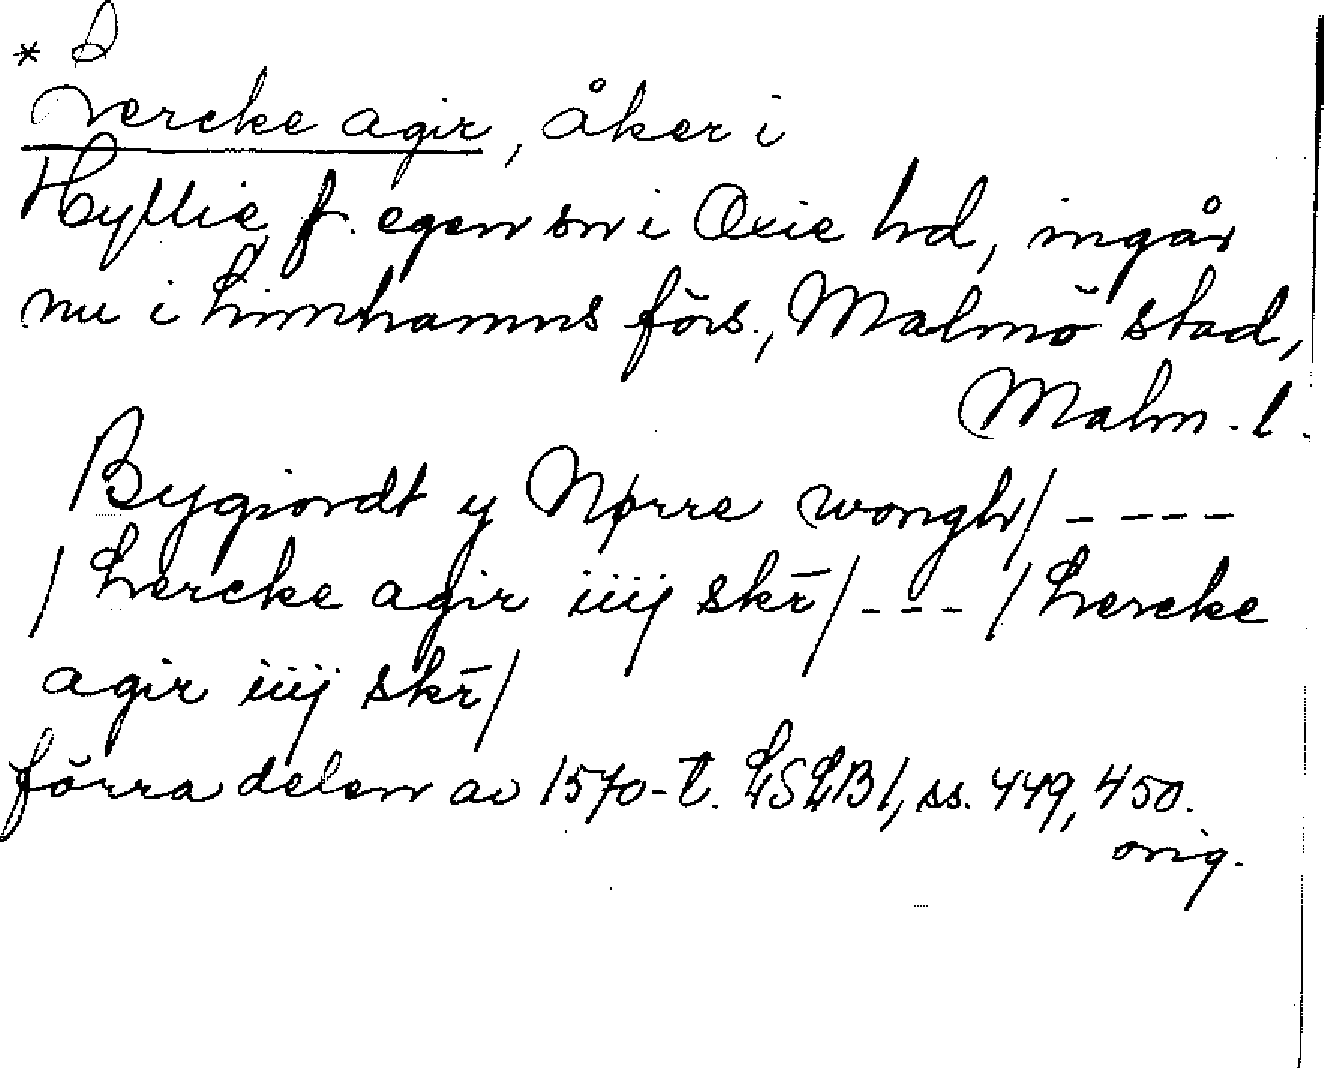 * Lercke agir, åker i
Hyllie, f. egen sn i Oxie hd, ingår
nu i Limhamns förs., Malmö stad,
Malm. l.
Bygiordt y Nørre wongh/ - - - -
/ Lercke agir iiij skr̄/ - - - / Lercke
agir iiij skr̄/
förra delen av 1570-t. LSLB1, ss. 449, 450.
orig.